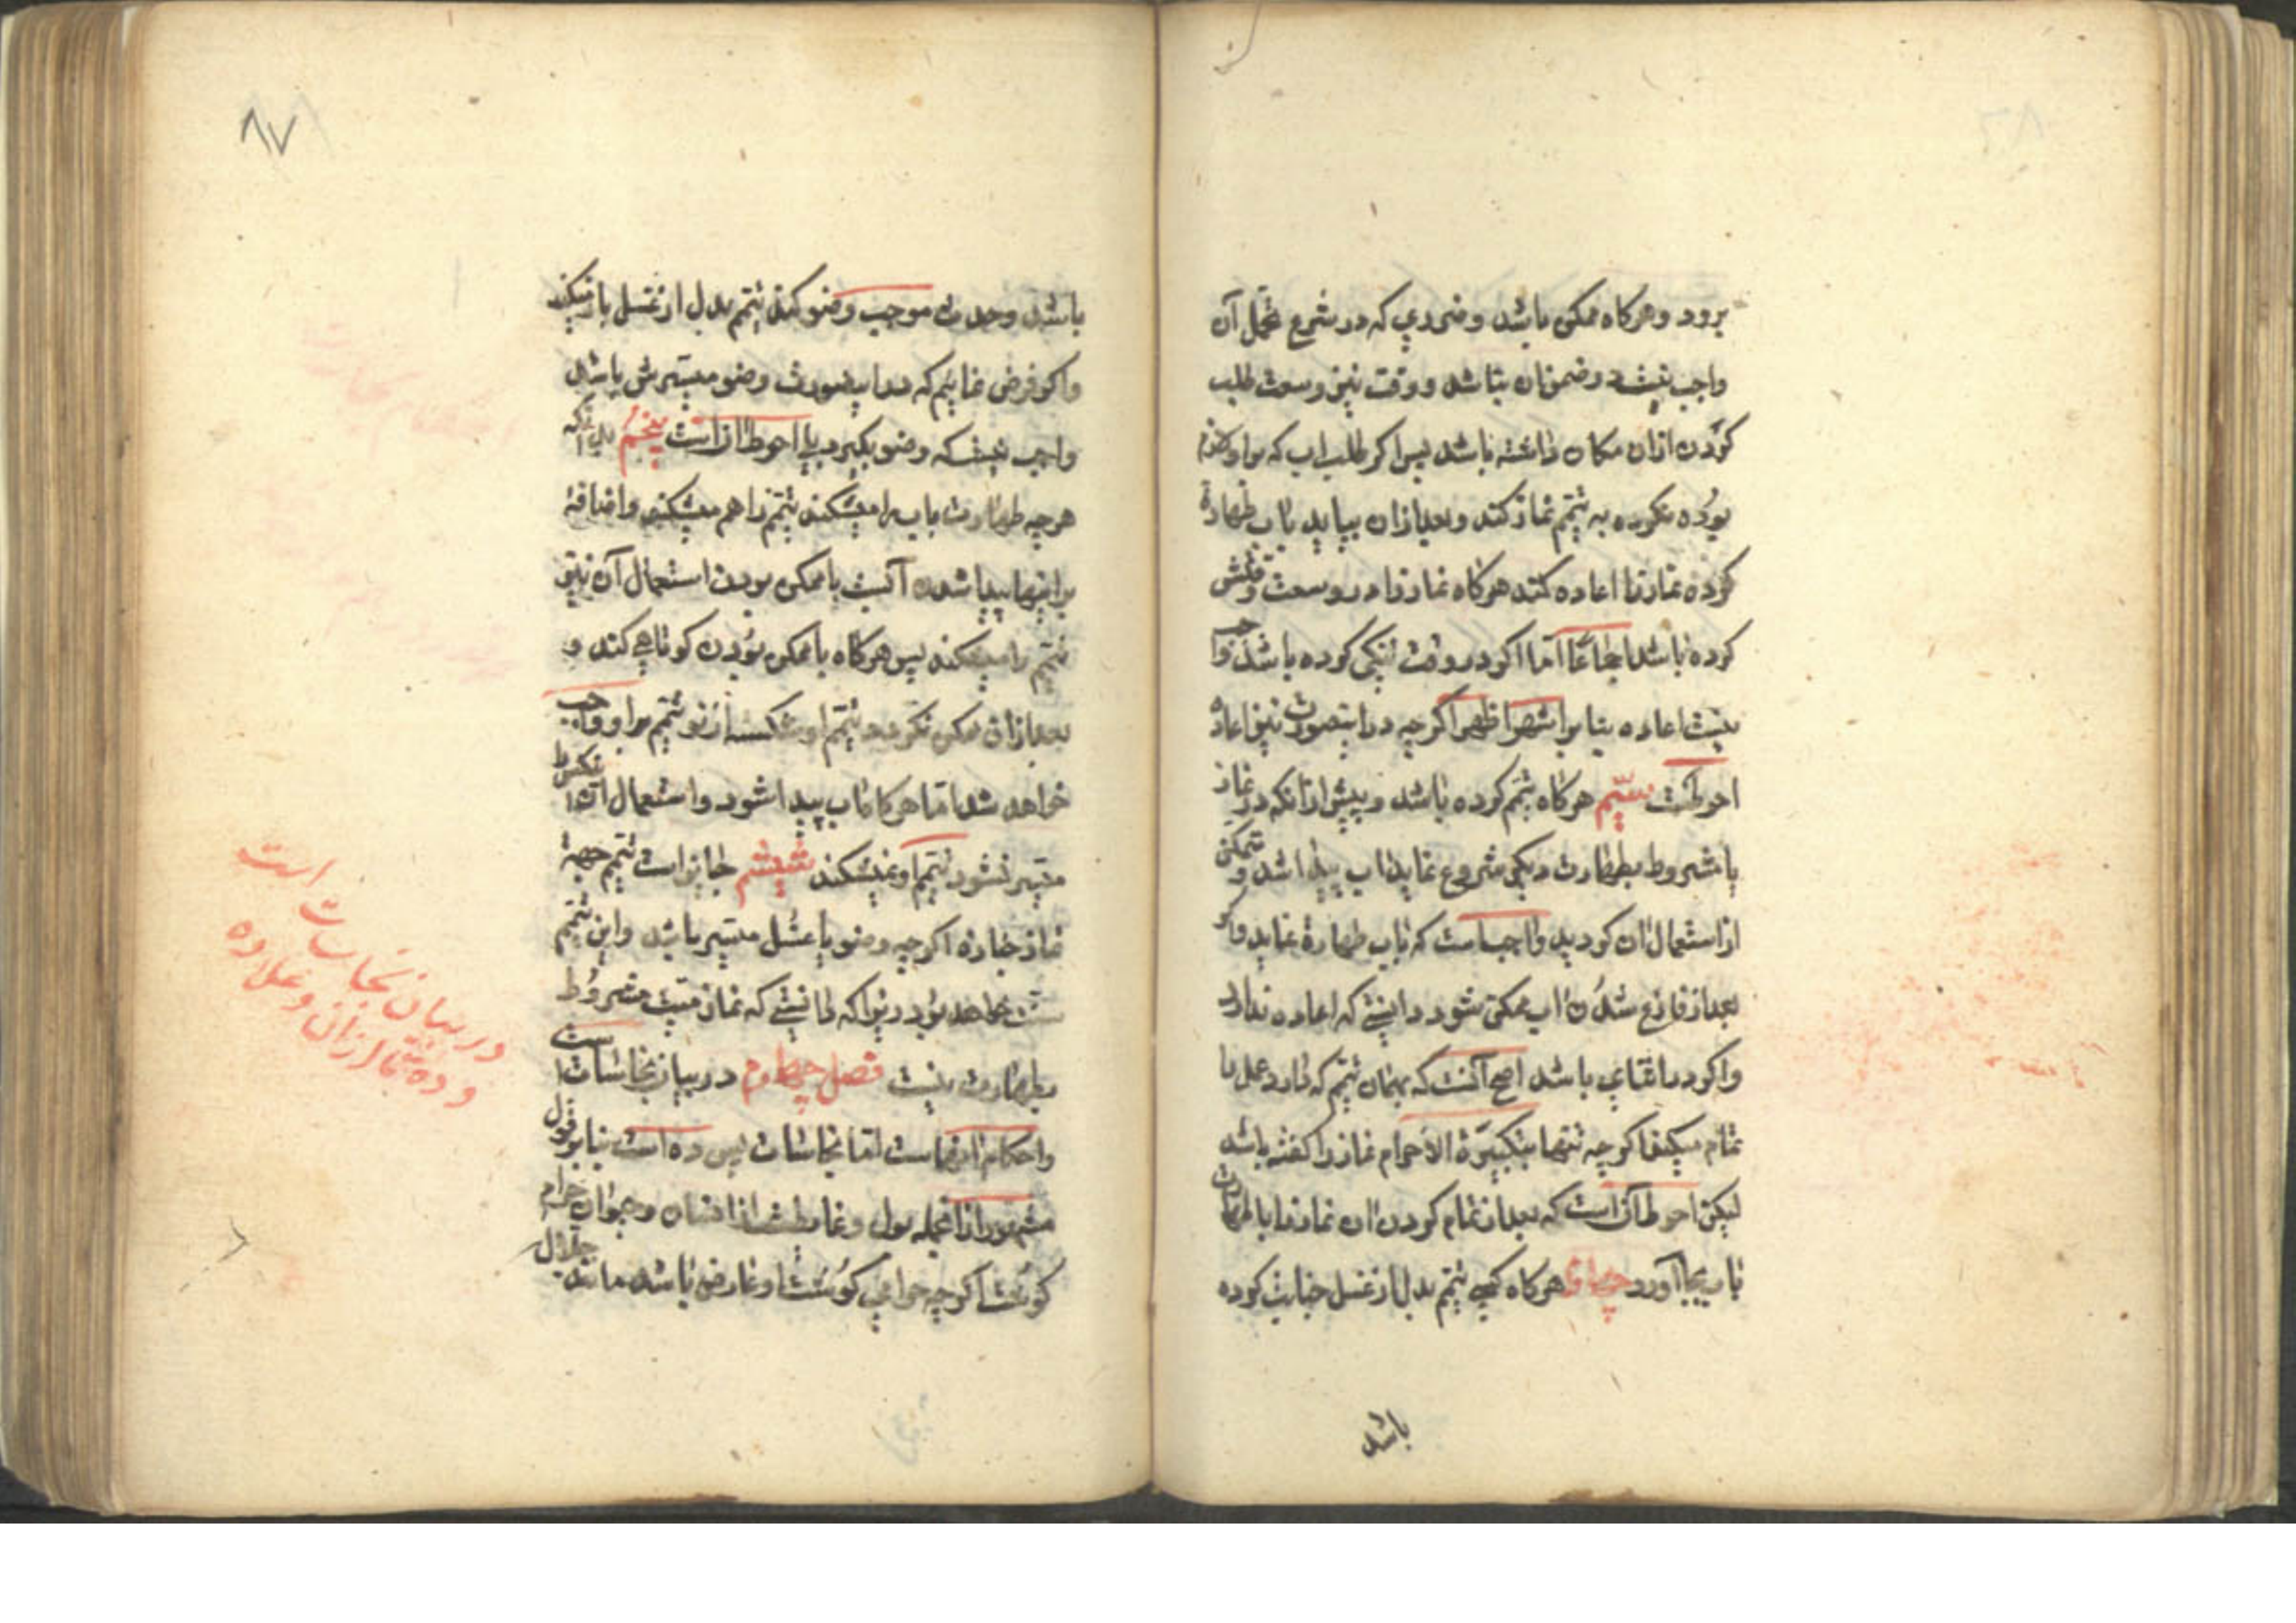 برود و هرکاه ممکن باشد و ضرری که در شرع تحمل آن
واجب نیست در ضمن ان نباشد و وقت نیز وسعت طلب
کردن ازان مکان داشته باشد پس اکر طلب اب که براو لازم
بوده نکرده به تیمم نماز کند و بعد ازان بیاید باب طهارة
کرده نماز را اعاده کند هرکاه نماز را در وسعت وقتش
کرده باشد اجماعًا اما اکر در وقت تنکی کرده باشد واجب
نیست اعاده بنا براشهر اظهر اکرچه دراینصورت نیز اعاده
احوطست سیّم هرکاه تیمم کرده باشد و پیش ازانکه در نماز
یا مشروط بطهارت دیکی شروع نماید اب پیدا شد و متمکن
از استعمال ان کردید واجب است که باب طهارة نماید و اکر
بعد از فارغ شدن اب ممکن شود دانستی که اعاده ندارد
و اکر در اثنای باشد اصح آنست که بهمان تیمم که دارد عمل را
تمام میکند اکرچه تنها تکبیرة الاحرام نماز را کفته باشد
لیکن احوط آن است که بعد از تمام کردن ان نماز را با طهارت
باب بجا آورد چهارم هرکاه کسی تیمم بدل از غسل جنابت کرده
باشد
۸۷
باشد و حدث موجب وضو کند تیمم بدل از غسل باز میکند
و اکر فرض نمائیم که دراینصورت وضو میسرش باشد
واجب نیست که وضو بکیرد بلی احوط ازاست پنجم بدانکه
هرچه طهارت باب را میشکند تیمم را هم میشکند و اضافهٔ
براینها پیدا شدن آبست با ممکن بودن استعمال آن نیز
تیمم را میشکند پس هرکاه با ممکن بودن کوتاهی کند و
بعد ازان ممکن نکردد تیمم او شکسته از نو تیمم براو واجب
خواهد شد اما هرکاه اب پیدا شود و استعمال آن
میسر نشود تیمم او نمیشکند ششم جایز است تیمم جهة
نماز جنازه اکرچه وضو یا غسل میسر باشد و این تیمم
سنت خواهد بود زیرا که دانستی که نماز میت مشروط
بطهارت نیست فصل چهارم در بیان نجاسات است
و احکام انهاست اما نجاسات پس ده است بنا بر قول
مشهور از انجمله بول و غایطست از انسان و حیوان حرام
کوشت اکرچه حرامی کوشت او عارض باشد مانند جلال
در بیان نجاسات است